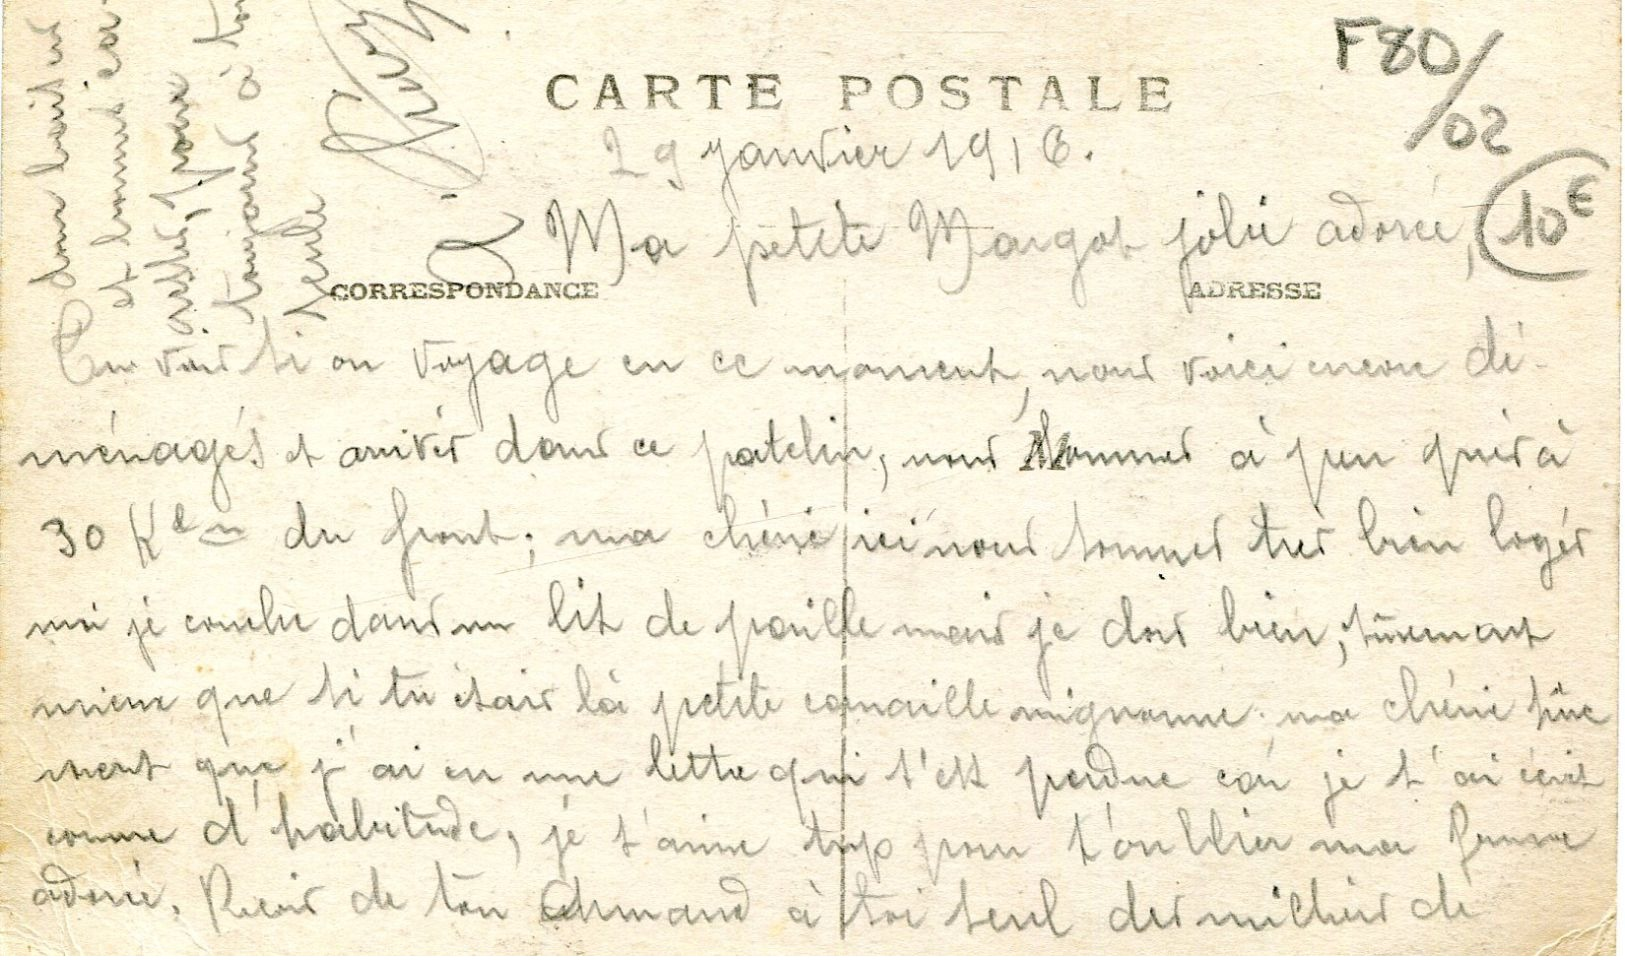 CARTE POSTALE
F80/02
10€
29 Janvier 1916.
Ma petite Margot jolie adorée,
CORRESPONDANCE
ADRESSE
Tu vois si on voyage en ce moment, nous voici encore dé-
ménagés et arrivés dans ce patelin, nous sommes à peu près à
30 Klm du front ; ma chérie ici nous sommes très bien logés
moi je couche dans un lit de paille mais je dors bien, sûrement
mieux que si tu étais là petite canaille mignonne. ma chérie sûre
ment que j'ai eu une lettre qui s'est perdue car je t'ai écrit
comme d'habitude, je t'aime trop pour t'oublier ma femme
adorée. Reçois de ton Armand à toi seul des milliers de
doux baisers
et bonnes
toujours à toi
seule